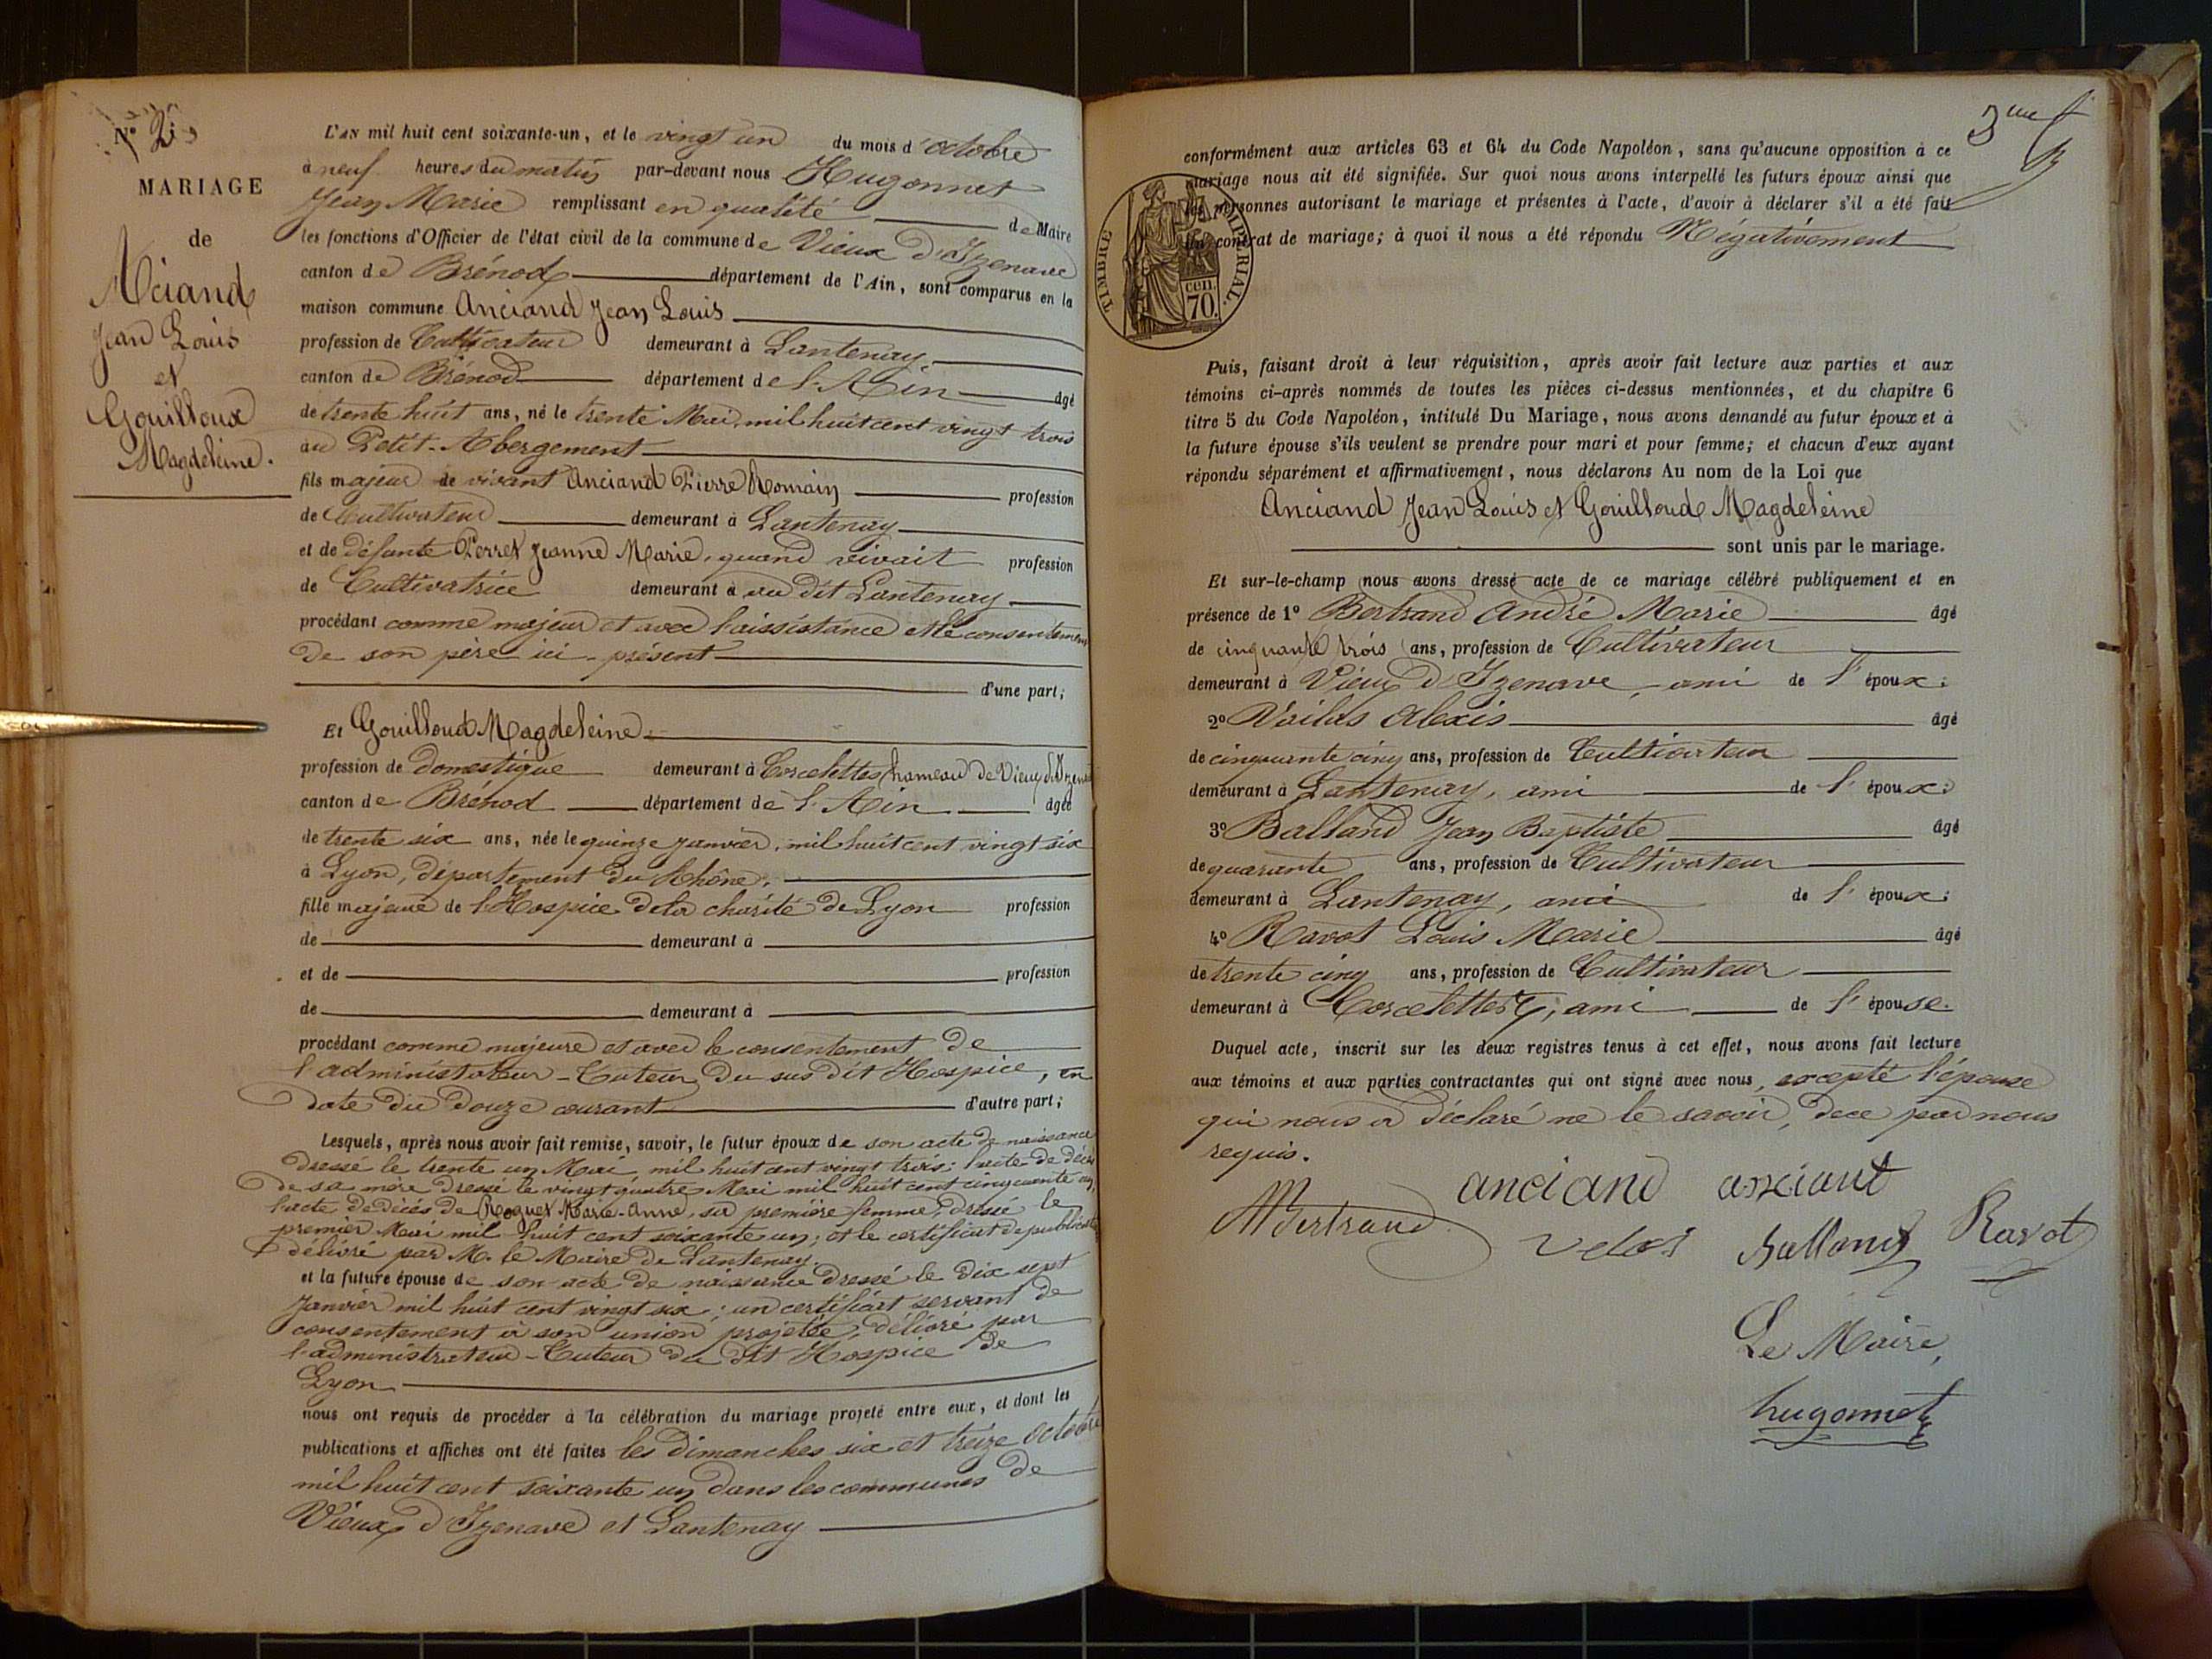 N° 2
MARIAGE
de
Anciand
Jean Louis
et
Gouilloux
Magdeleine.
L'AN mil huit cent soixante-un, et le vingt un du mois d'octobre
à neuf heures du matin par-devant nous Hugonnet
Jean Marie remplissant en qualité de Maire
les fonctions d'Officier de l'état civil de la commune de Vieux d'Izenave
canton de Brénod département de l'Ain, sont comparus en la
maison commune Anciand Jean Louis
profession de Cultivateur demeurant à Lantenay
canton de Brénod département de l'Ain âgé
de trente huit ans, né le trente Mai, mil huit cent vingt trois
au Petit-Abergement
fils majeur de vivant Anciand Pierre Romain profession
de Cultivateur demeurant à Lantenay
et de défunte Perret Jeanne Marie, quand vivait profession
de Cultivatrice demeurant à au dit Lantenay
procédant comme majeur et avec l'aissistance et le consentement
de son père ici-présent
d'une part;
Et Gouilloud Magdeleine
profession de domestique demeurant à Corcelettes hameau de Vieux d'Izenave
canton de Brénod département de l'Ain âgée
de trente six ans, née le quinze janvier, mil huit cent vingt six
à Lyon, département du Rhône,
fille majeure de l'Hospice de la charité de Lyon profession
de demeurant à
et de profession
de demeurant à
procédant comme majeure et avec le consentement de
l'administrateur-Tuteur du sus dit Hospice, en
date du douze courant d'autre part;
Lesquels, après nous avoir fait remise, savoir, le futur époux de son acte de naissance
dressé le trente un Mai mil huit cent vingt trois; l'acte de décès
de sa mère dressé le vingt quatre Mai mil huit cent cinquante un,
l'acte de décès de Roguet Marie-Anne, sa première femme, dressé le
premier Mai mil huit cent soixante un; et le certificat de publication
délivré par M. le Maire de Lantenay.
et la future épouse de son acte de naissance dressé le dix sept
Janvier mil huit cent vingt six; un certificat servant de
consentement à son union projetée, délivré par
l'administrateur-Tuteur du dit Hospice de
Lyon
nous ont requis de procéder à la célébration du mariage projeté entre eux, et dont les
publications et affiches ont été faites les dimanches six et treize octobre
mil huit cent soixante un dans les communes de
Vieux d'Izenave et Lantenay
3me
conformément aux articles 63 et 64 du Code Napoléon, sans qu'aucune opposition à ce
mariage nous ait été signifiée. Sur quoi nous avons interpellé les futurs époux ainsi que
les personnes autorisant le mariage et présentes à l'acte, d'avoir à déclarer s'il a été fait
un contrat de mariage; à quoi il nous a été répondu Négativement
TIMBRE IMPERIAL.
cen.
70.
Puis, faisant droit à leur réquisition, après avoir fait lecture aux parties et aux
témoins ci-après nommés de toutes les pièces ci-dessus mentionnées, et du chapitre 6
titre 5 du Code Napoléon, intitulé Du Mariage, nous avons demandé au futur époux et à
la future épouse s'ils veulent se prendre pour mari et pour femme; et chacun d'eux ayant
répondu séparément et affirmativement, nous déclarons Au nom de la Loi que
Anciand Jean Louis et Gouilloud Magdeleine
sont unis par le mariage.
Et sur-le-champ nous avons dressé acte de ce mariage célébré publiquement et en
présence de 1° Bertrand André Marie âgé
de cinquante trois ans, profession de Cultivateur
demeurant à Vieux d'Izenave, ami de l'époux;
2° Alexis âgé
de cinquante cinq ans, profession de Cultivateur
demeurant à Lantenay, ami de l'époux;
3° Balland Jean Baptiste âgé
de quarante ans, profession de Cultivateur
demeurant à Lantenay, ami de l'époux;
4° Ravot Louis Marie âgé
de trente cinq ans, profession de Cultivateur
demeurant à Corcelettes, ami de l'épouse.
Duquel acte, inscrit sur les deux registres tenus à cet effet, nous avons fait lecture
aux témoins et aux parties contractantes qui ont signé avec nous, excepté l'épouse
qui nous a déclaré ne le savoir, de ce par nous
requis.
anciand anciant
ABertrand Balland Ravot
Le Maire,
hugonnet